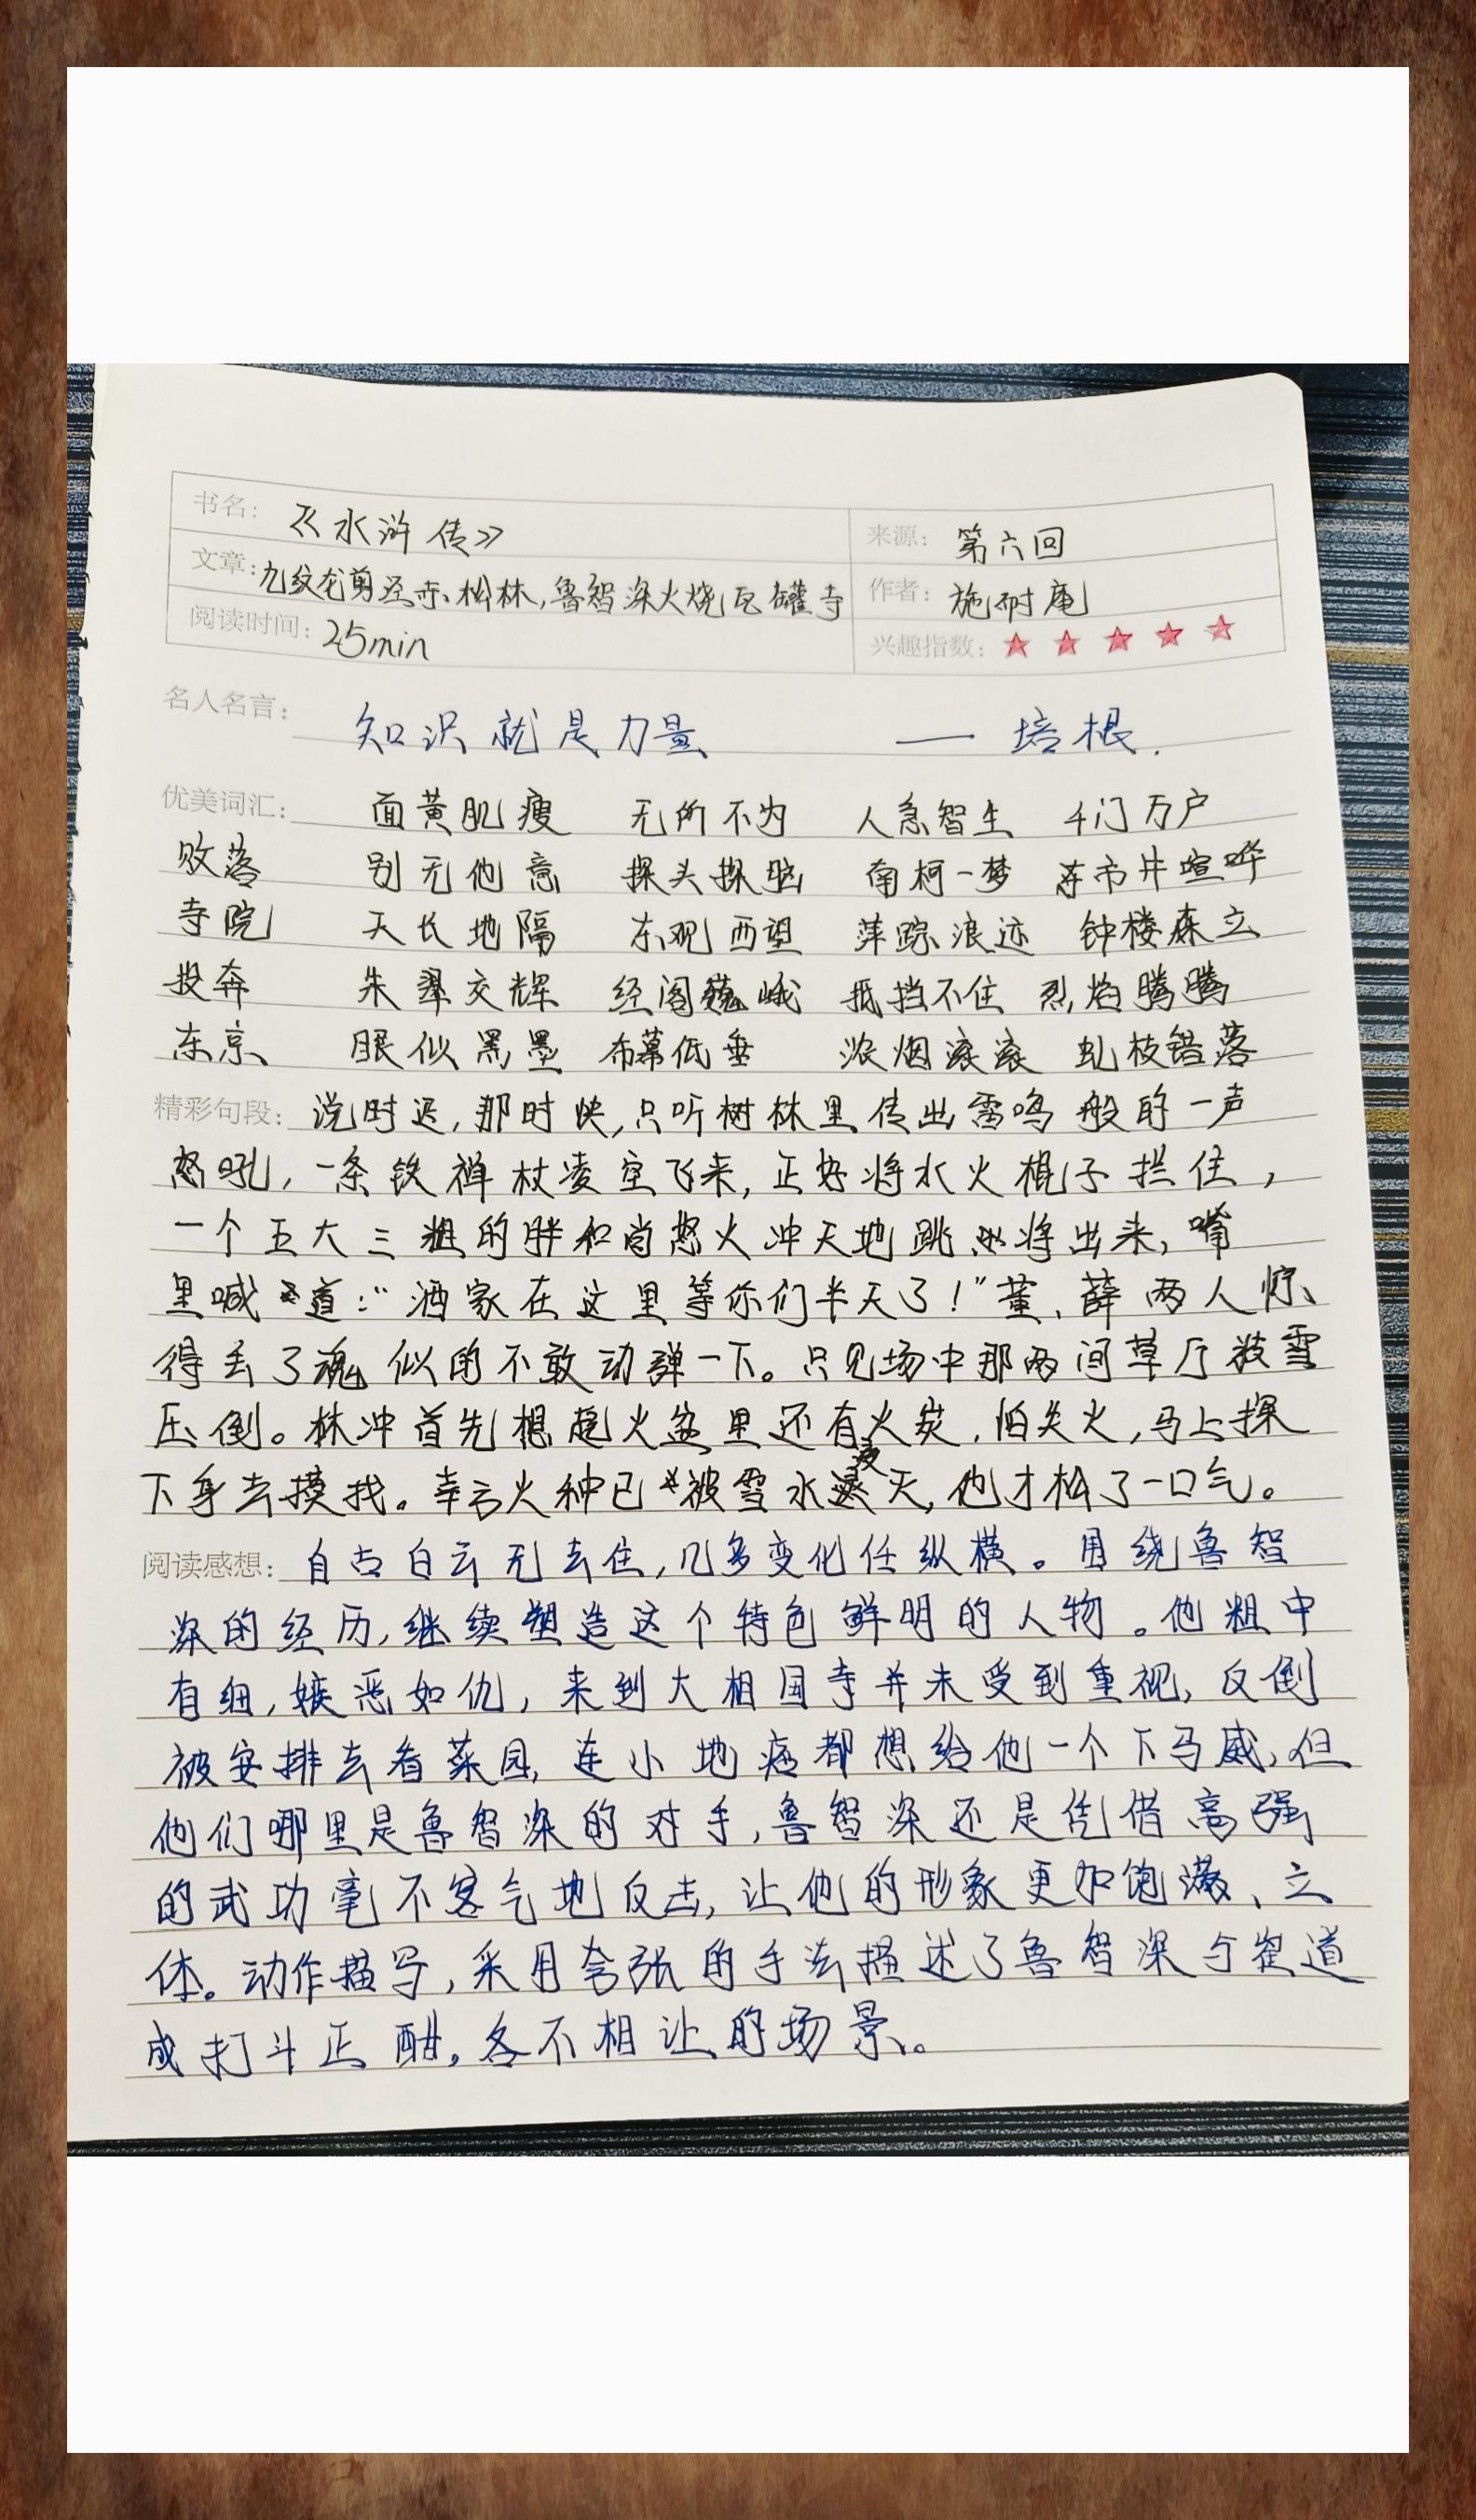 书名：《水浒传》
来源：第六回
文章：九纹龙剪径赤松林，鲁智深火烧瓦罐寺
作者：施耐庵
阅读时间：25min
兴趣指数：★★★★★
名人名言：知识就是力量 —— 培根.
优美词汇： 面黄肌瘦 无所不为 人急智生 千门万户
败落 别无他意 探头探脑 南柯一梦 市井喧哗
寺院 天长地隔 东观西望 萍踪浪迹 钟楼森立
投奔 朱翠交辉 经阁巍峨 抵挡不住 烈焰腾腾
东京 眼似黑墨 布幕低垂 浓烟滚滚 虬枝错落
精彩句段：说时迟，那时快，只听树林里传出雷鸣般的一声
怒吼，一条铁禅杖凌空飞来，正好将水火棍子拦住，
一个五大三粗的胖和尚怒火冲天地跳将出来，嘴
里喊道：“洒家在这里等你们半天了！”董、薛两人惊
得丢了魂似的不敢动弹一下。只见场中那两间草厅被雪
压倒。林冲首先想起火盆里还有火炭，怕失火，马上探
下身去摸找。幸亏火种已被雪水浸灭，他才松了一口气。
阅读感想：自古白云无去住，几多变化任纵横。围绕鲁智
深的经历，继续塑造这个特色鲜明的人物。他粗中
有细，嫉恶如仇，来到大相国寺并未受到重视，反倒
被安排去看菜园，连小地痞都想给他一个下马威，但
他们哪里是鲁智深的对手，鲁智深还是凭借高强
的武功毫不客气地反击，让他的形象更加饱满、立
体。动作描写，采用夸张的手法描述了鲁智深与崔道
成打斗正酣，各不相让的场景。